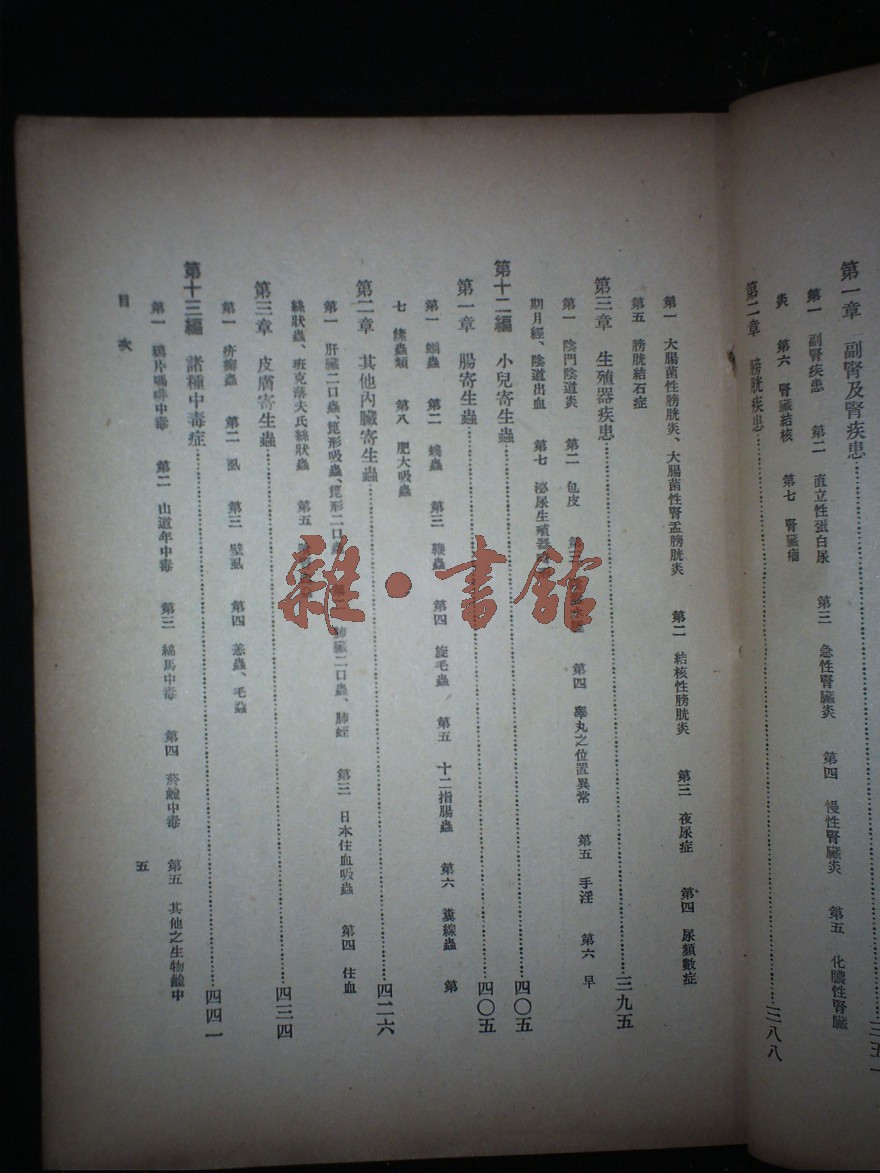 第一章 副腎及腎疾患
第一 副腎疾患 第二 直立性蛋白尿 第三 急性腎臟炎 第四 慢性腎臟炎 第五 化膿性腎臟
炎 第六 腎臟結核 第七 腎臟瘤
第二章 膀胱疾患……三八八
第一 大腸菌性膀胱炎、大腸菌性腎盂膀胱炎 第二 結核性膀胱炎 第三 夜尿症 第四 尿頻數症
第五 膀胱結石症
第三章 生殖器疾患……三九五
第一 陰門陰道炎 第二 包皮 第四 睾丸之位置異常 第五 手淫 第六 早
期月經、陰道出血 第七 泌尿生殖器
第十二編 小兒寄生蟲……四〇五
第一章 腸寄生蟲……四〇五
第一 蛔蟲 第二 蟯蟲 第三 鞭蟲 第四 旋毛蟲 第五 十二指腸蟲 第六 糞線蟲 第
七 絛蟲類 第八 肥大吸蟲
第二章 其他內臟寄生蟲……四二六
第一 肝臟二口蟲、箆形吸蟲、箆形二口蟲 第二 肺臟二口蟲、肺蛭 第三 日本住血吸蟲 第四 住血
絲狀蟲、班克落夫氏絲狀蟲 第五
第三章 皮膚寄生蟲……四三四
第一 疥癬蟲 第二 虱 第三 壁虱 第四 恙蟲、毛蝨
第十三編 諸種中毒症……四四一
第一 鴉片嗎啡中毒 第二 山道年中毒 第三 綿馬中毒 第四 菸鹼中毒 第五 其他之生物鹼中
目次 五
雜·書館